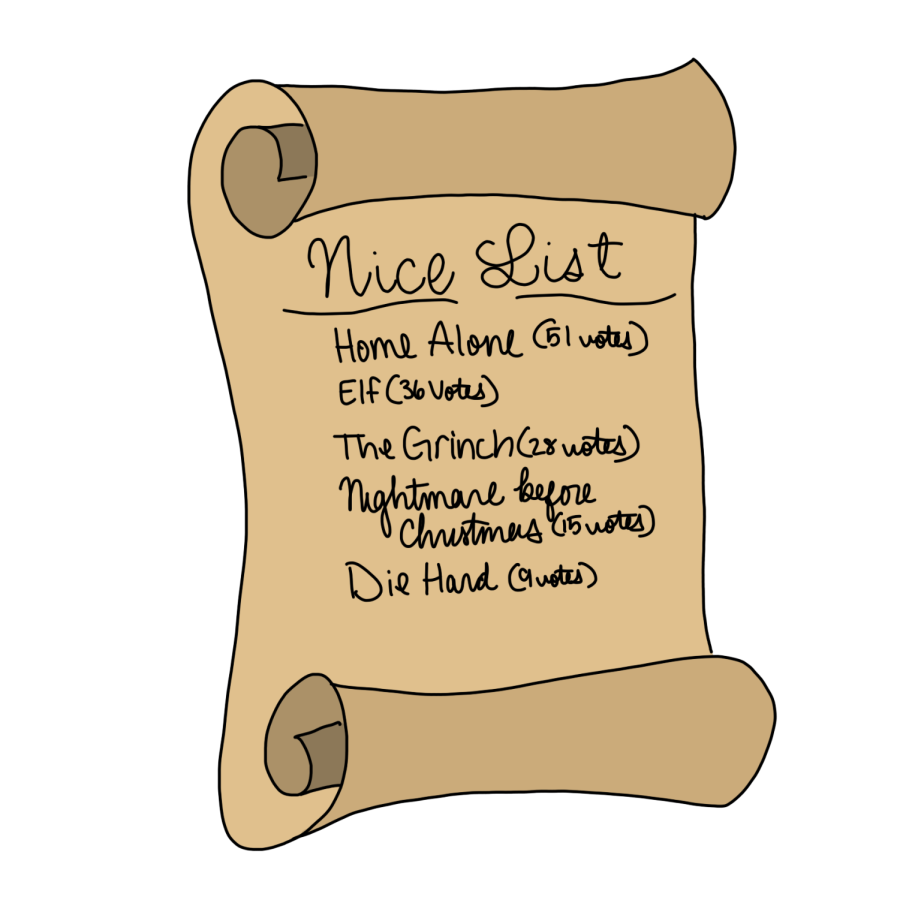 Nice List
Home Alone (51 votes)
Elf (36 votes)
The Grinch (28 votes)
Nightmare before
Christmas (15 votes)
Die Hard (9 votes)